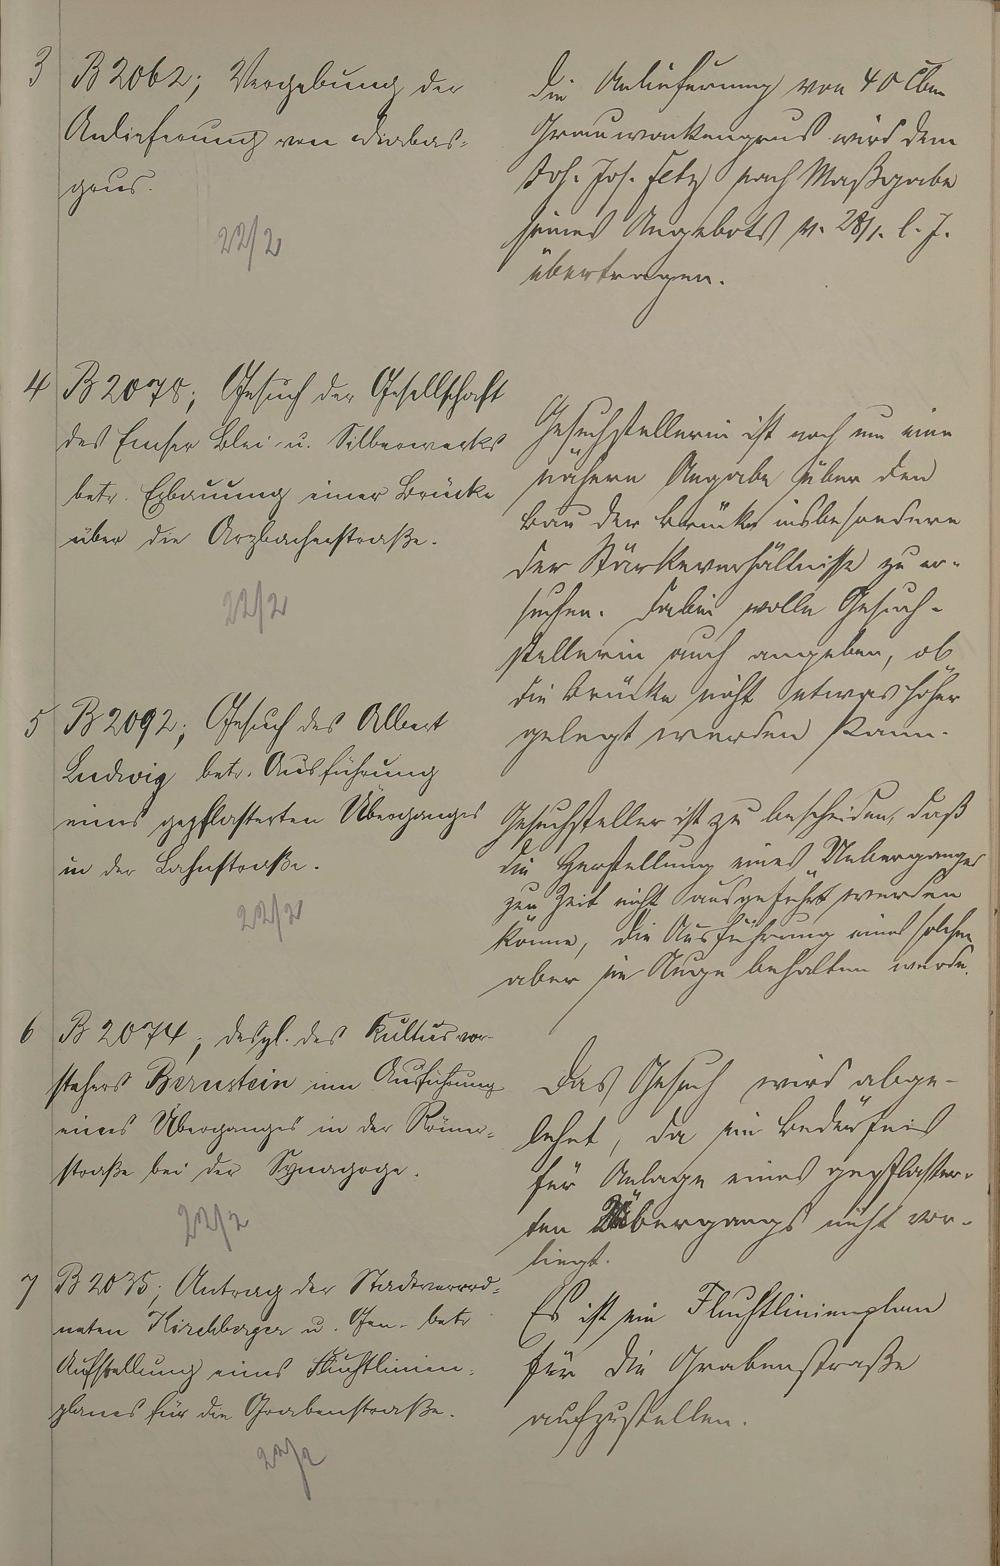 3 B 2062; Vergebung der
Anlieferung von Diabas-
grus.
22/2
Die Anlieferung von 40 Cbm
Grauwackengrus wird dem
Joh. Jos. Fetz nach Maßgabe
seines Angebots v. 28/1. l. J.
übertragen.
4 B 2078; Gesuch der Gesellschaft
des Emser Blei- u. Silberwerks
betr. Erbauung einer Brücke
über die Arzbacherstraße.
22/2
Gesuchstellerin ist noch um eine
nähere Angabe über den
Bau der Brücke insbesondere
der Stärkeverhältnisse zu er-
suchen. Dabei wolle Gesuch-
stellerin auch angeben, ob
die Brücke nicht etwas höher
gelegt werden kann.
5 B 2092; Gesuch des Albert
Ludwig betr. Ausführung
eines gepflasterten Überganges
in der Lahnstraße.
22/2
Gesuchsteller ist zu bescheiden, daß
die Herstellung eines Ueberganges
zur Zeit nicht ausgeführt werden
könne, die Ausführung eines solchen
aber im Auge behalten werde.
6 B 2074; desgl. des Kultusvor-
stehers Bernstein um Ausführung
eines Überganges in der Römer-
straße bei der Synagoge.
22/2
Das Gesuch wird abge-
lehnt, da ein Bedürfnis
für Anlage eines gepflaster-
ten Übergangs nicht vor-
liegt.
7 B 2035; Antrag der Stadtverord-
neten Kirchberger u. Gen. betr
Aufstellung eines Fluchtlinien-
planes für die Grabenstraße.
22/2
Es ist ein Fluchtlinienplan
für die Grabenstraße
aufzustellen.